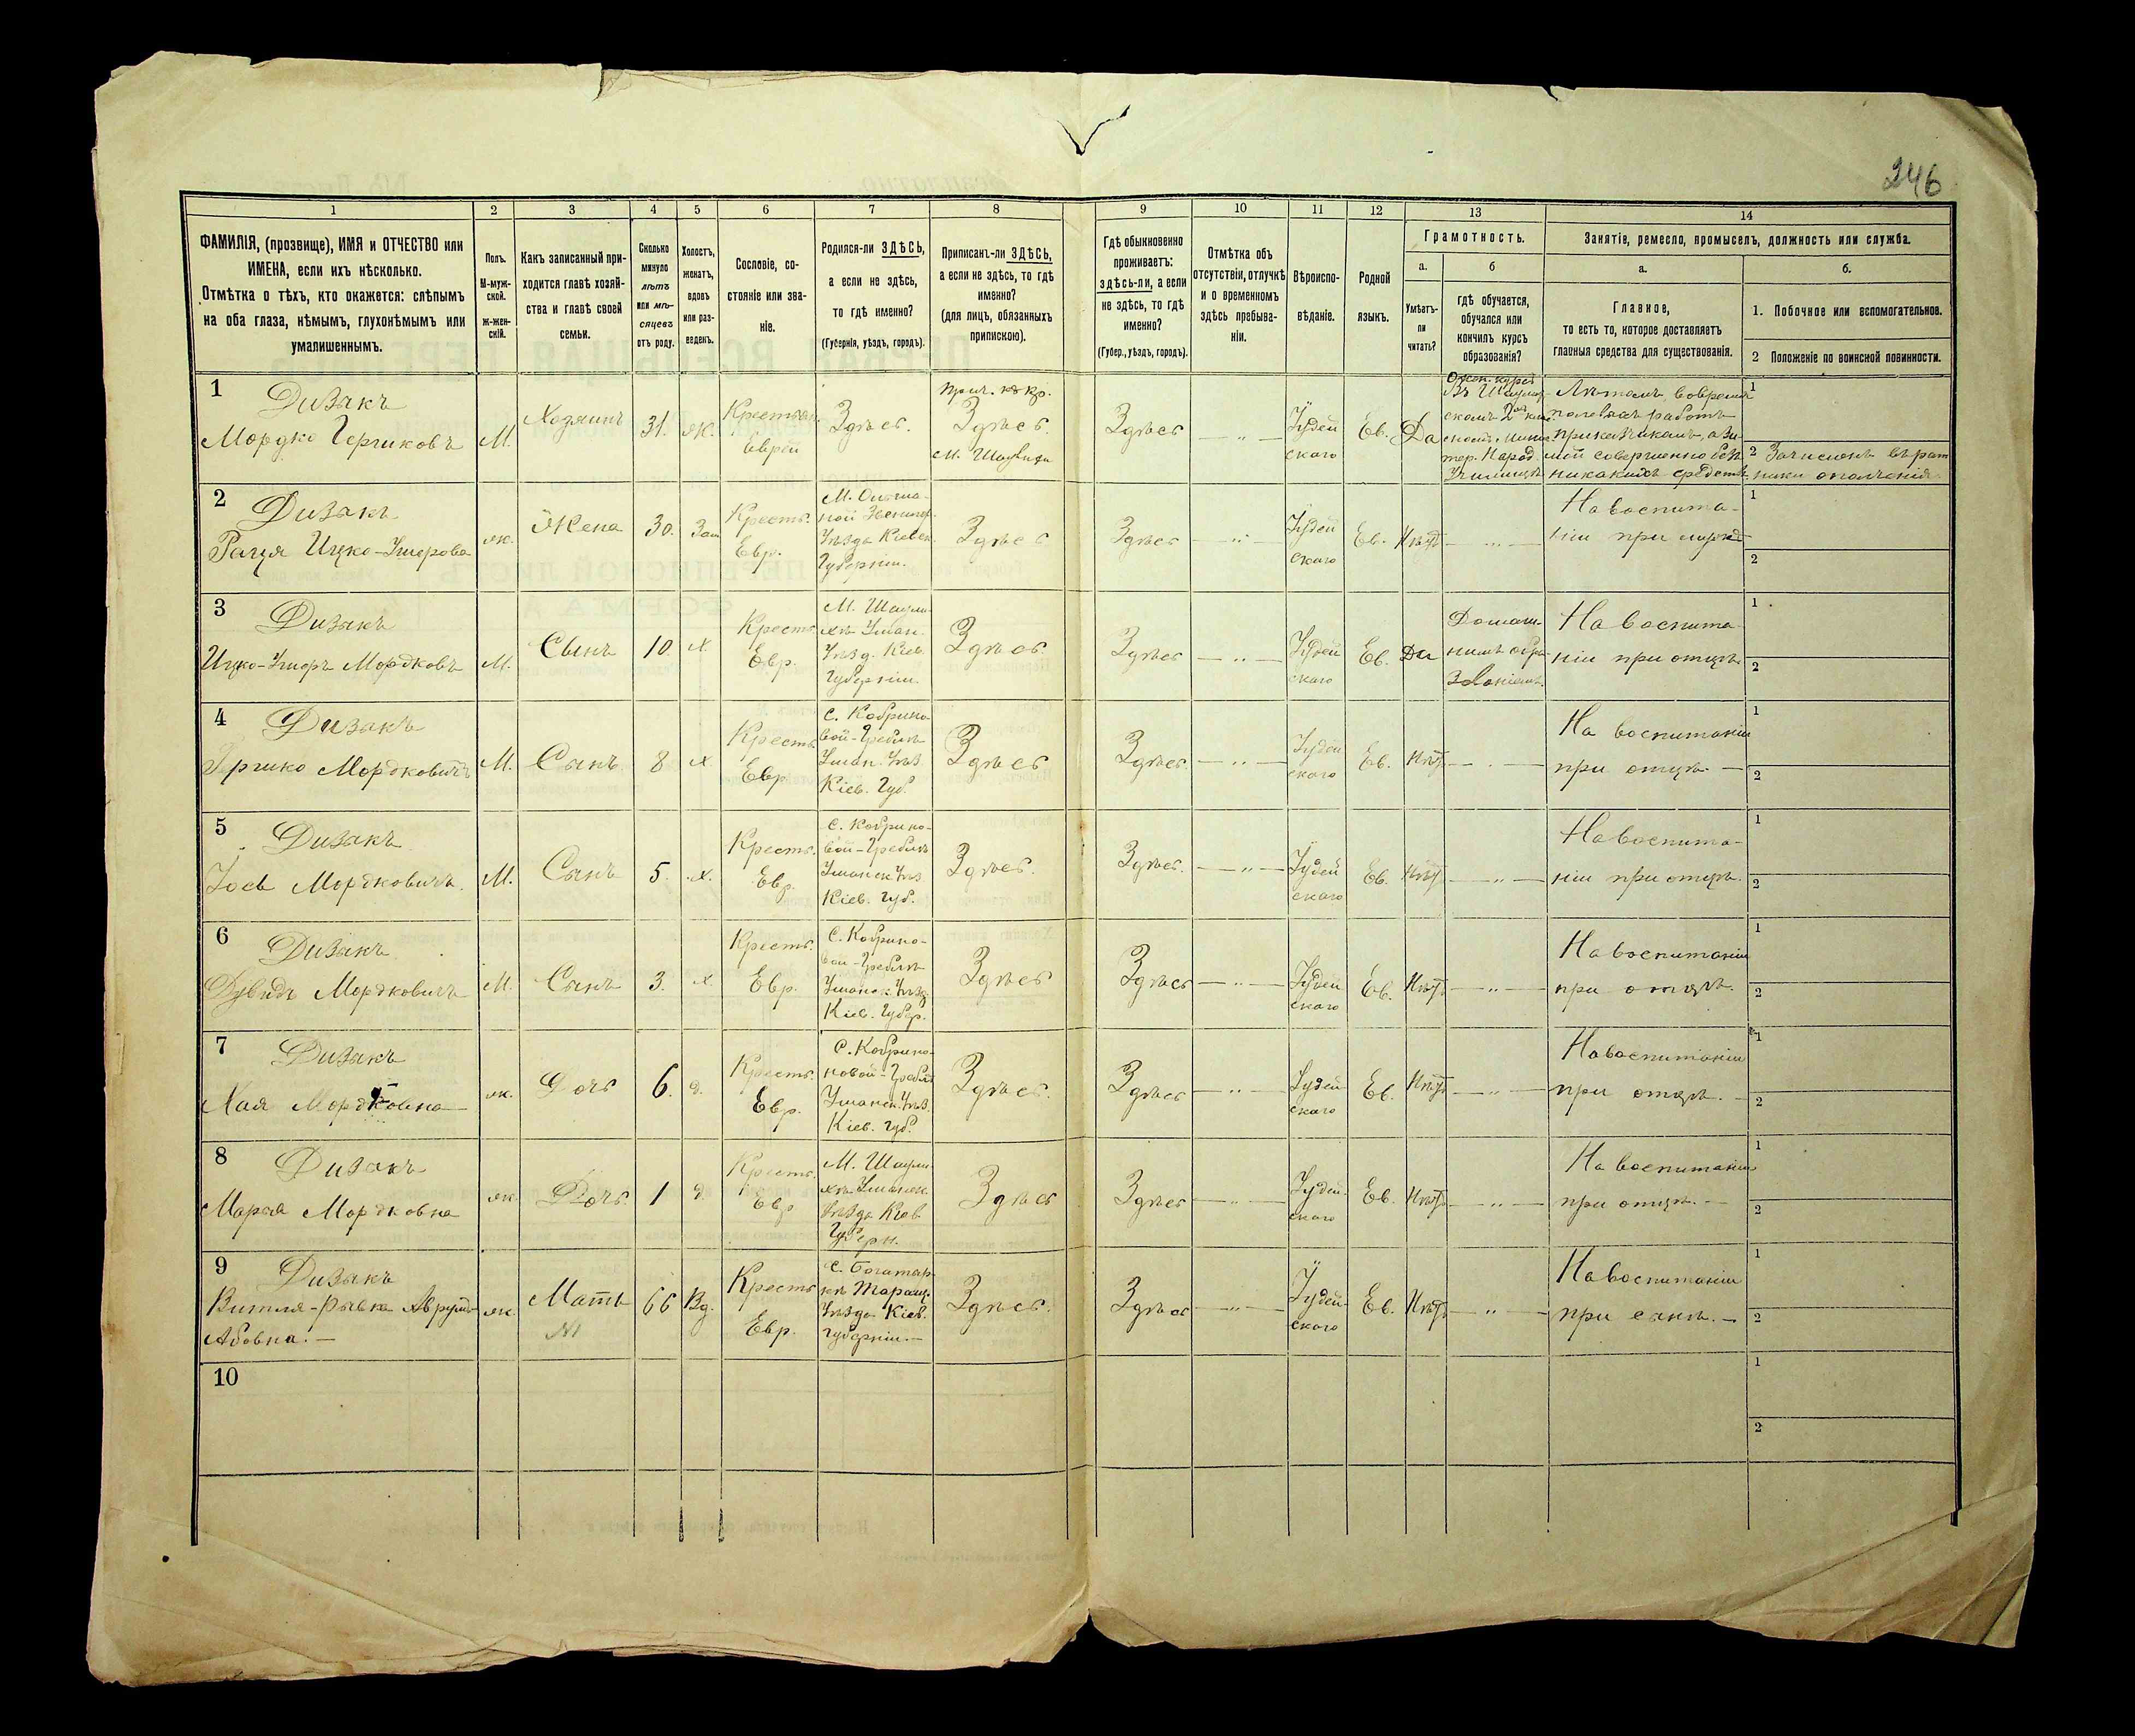 246
1 2 3 4 5 6 7 8 9 10 11 12 13 14
ФАМИЛІЯ, (прозвище), ИМЯ и ОТЧЕСТВО или
ИМЕНА, если ихъ нѣсколько.
Отмѣтка о тѣхъ, кто окажется: слѣпымъ
на оба глаза, нѣмымъ, глухонѣмымъ или
умалишеннымъ.
Полъ.
М-муж-
ской.
ж-жен-
скій.
Какъ записанный при-
ходится главѣ хозяй-
ства и главѣ своей
семьи.
Сколько
минуло
лѣтъ
или мѣ-
сяцевъ
отъ роду.
Холостъ,
женатъ,
вдовъ
или раз-
веденъ.
Сословіе, со-
стояніе или зва-
ніе.
Родился-ли ЗДѢСЬ,
а если не здѣсь,
то гдѣ именно?
(Губернія, уѣздъ, городъ).
Приписанъ-ли ЗДѢСЬ,
а если не здѣсь, то гдѣ
именно?
(для лицъ, обязанныхъ
припискою).
Гдѣ обыкновенно
проживаетъ:
здѣсь-ли, а если
не здѣсь, то гдѣ
именно?
(Губер., уѣздъ, городъ).
Отмѣтка объ
отсутствіи, отлучкѣ
и о временномъ
здѣсь пребыва-
ніи.
Вѣроиспо-
вѣданіе.
Родной
языкъ.
Грамотность.
а.
Умѣетъ-
ли
читать?
б
гдѣ обучается,
обучался или
кончилъ курсъ
образованія?
Занятіе, ремесло, промыселъ, должность или служба.
а.
Главное,
то есть то, которое доставляетъ
главныя средства для существованія.
б.
1. Побочное или вспомогательное.
2 Положеніе по воинской повинности.
1
Дизакъ
Мордко
М.
Хозяинъ
31.
Ж.
Еврей
Здѣсь.
Здѣсь
Здѣсь
— „ —
Іудей
скаго
Ев.
Да
Училищѣ
полевыхъ работъ
прикащикомъ, а зи-
мой совершенно безъ
никакихъ средствъ.
1
2 Зачисленъ въ рат
ники ополченія.
2
Дизакъ
Ицко-Ушерова
ж.
Жена
30.
Зам
Крестъ.
Евр.
Уѣзда Кіевск.
Губерніи.
Здѣсь
Здѣсь
— „ —
Іудей
скаго
Ев.
Нѣтъ
— „ —
На воспита-
ніи при мужѣ
1
2
3
Дизакъ
Ицко-Ушеръ Мордковъ
М.
Сынъ
10.
х
Крестъ.
Евр.
Уман.
Уѣзд. Кіев.
Губерніи.
Здѣсь
Здѣсь
— „ —
Іудей
скаго
Ев.
Да
Домаш-
нимъ обра-
зованіемъ.
На воспита-
ніи при отцѣ.
1
2
4
Дизакъ
Мордковичъ
М.
Сынъ
8
х
Крестъ.
Евр.
С. Кобрино-
вой-Гребли
Уман. Уѣз
Кіев. Губ.
Здѣсь
Здѣсь.
— „ —
Іудей
скаго
Ев.
Нѣтъ
— „ —
На воспитаніи
при отцѣ. —
1
2
5
Дизакъ
Мордковичъ.
М.
Сынъ
5.
х.
Крестъ.
Евр.
С. Кобрино-
вой-Гребли
Уманск Уѣз
Кіев. Губ.
Здѣсь.
Здѣсь.
— „ —
Іудей
скаго
Ев.
Нѣтъ
— „ —
На воспита-
ніи при отцѣ.
1
2
6
Дизакъ
Мордковичъ
М.
Сынъ
3.
х
Крестъ.
Евр.
С. Кобрино-
вой-Гребли
Уманск Уѣзд.
Кіев. Губер.
Здѣсь
Здѣсь
— „ —
Іудей
скаго
Ев.
Нѣтъ
— „ —
На воспитаніи
при отцѣ.
1
2
7
Дизакъ
Хая Мордковна
ж.
Дочь
6.
д.
Крестъ.
Евр.
С. Кобрино-
новой-Гребли
Уманск. Уѣз.
Кіев. Губ.
Здѣсь.
Здѣсь
— „ —
Іудей
скаго
Ев.
Нѣтъ
— „ —
На воспитаніи
при отцѣ. —
1
2
8
Дизакъ
Мордковна
ж.
Дочь
1
д.
Крестъ.
Евр
Уманск.
Уѣзда Кіев
Губерн.
Здѣсь
Здѣсь
— „ —
Іудей
скаго
Ев.
Нѣтъ
— „ —
На воспитаніи
при отцѣ. —
1
2
9
Дизакъ
ж.
Мать
66
Вд.
Крестъ
Евр.
Таращ.
Уѣзда Кіев.
Губерніи. —
Здѣсь.
Здѣсь
— „ —
Іудей-
скаго
Ев.
Нѣтъ
— „ —
На воспитаніи
при сынѣ. —
1
2
10
1
2